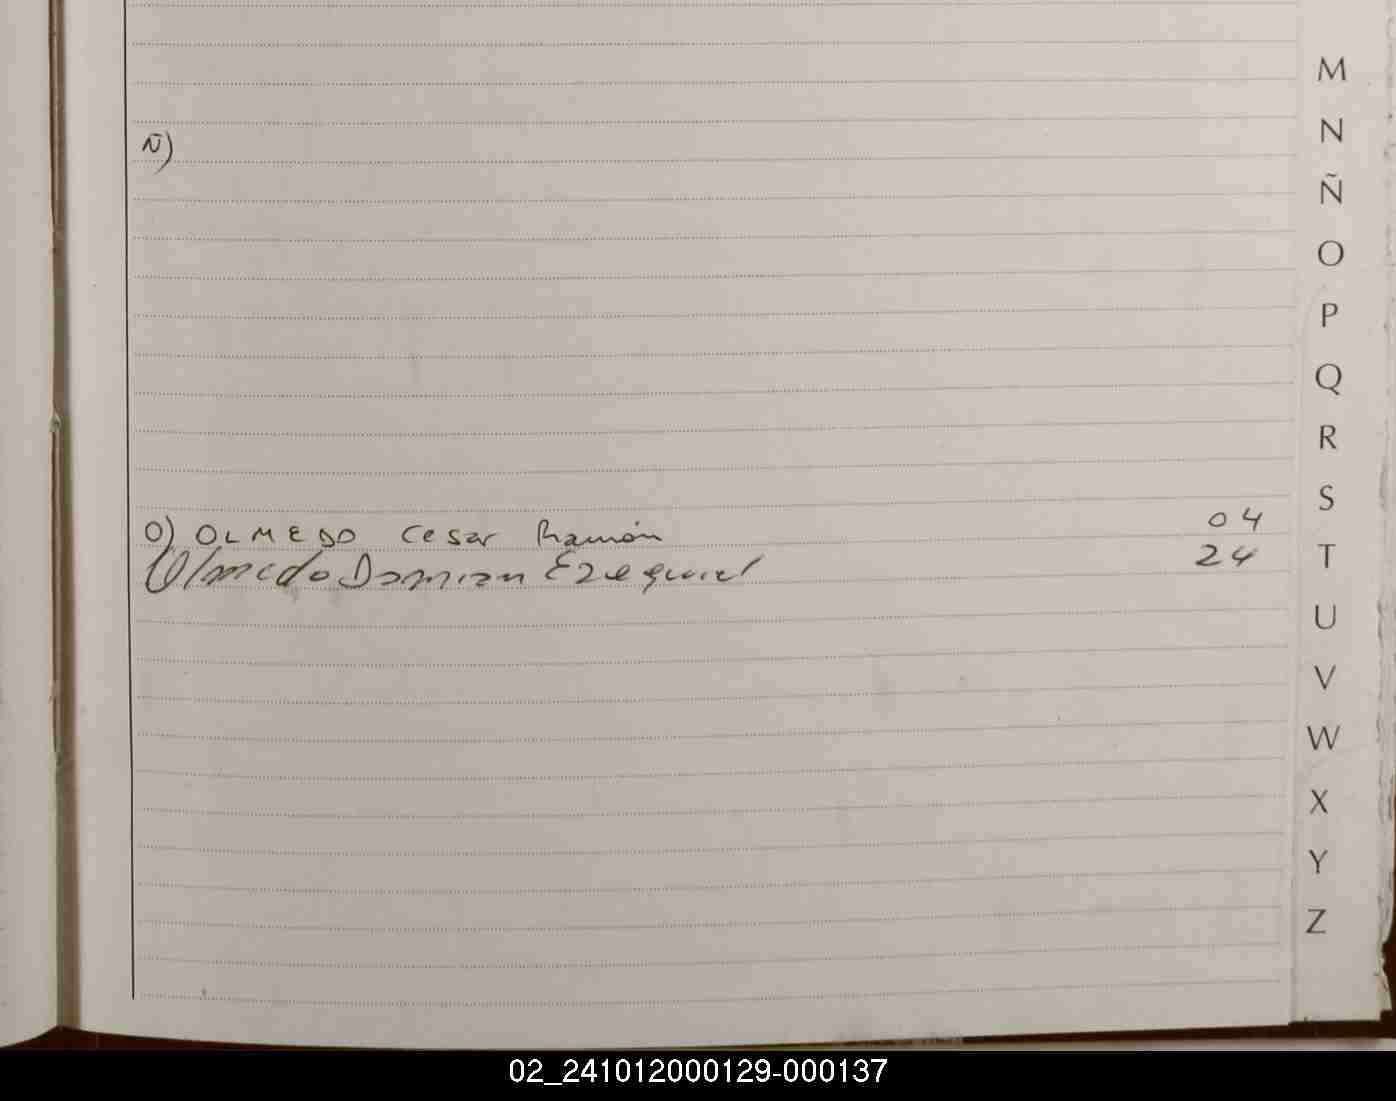 M
N
Ñ
Ñ)
O
P
Q
R
S
O) OLMEDO Cesar Ramón 04
T
Olmedo Damian Ezequiel 24
U
V
W
X
Y
Z
02_241012000129-000137